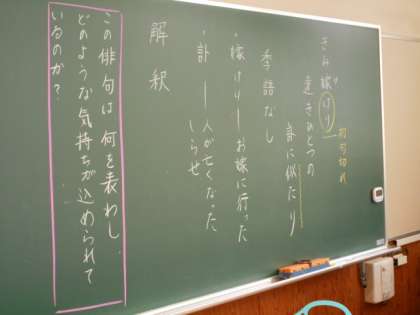 きみ嫁げり
遠きひとつの
訃に似たり
初句切れ
季語なし
・嫁げり―お嫁に行った
・訃―人が亡くなった
しらせ
解釈
この俳句は何を表わし、
どのような気持ちが込められて
いるのか？